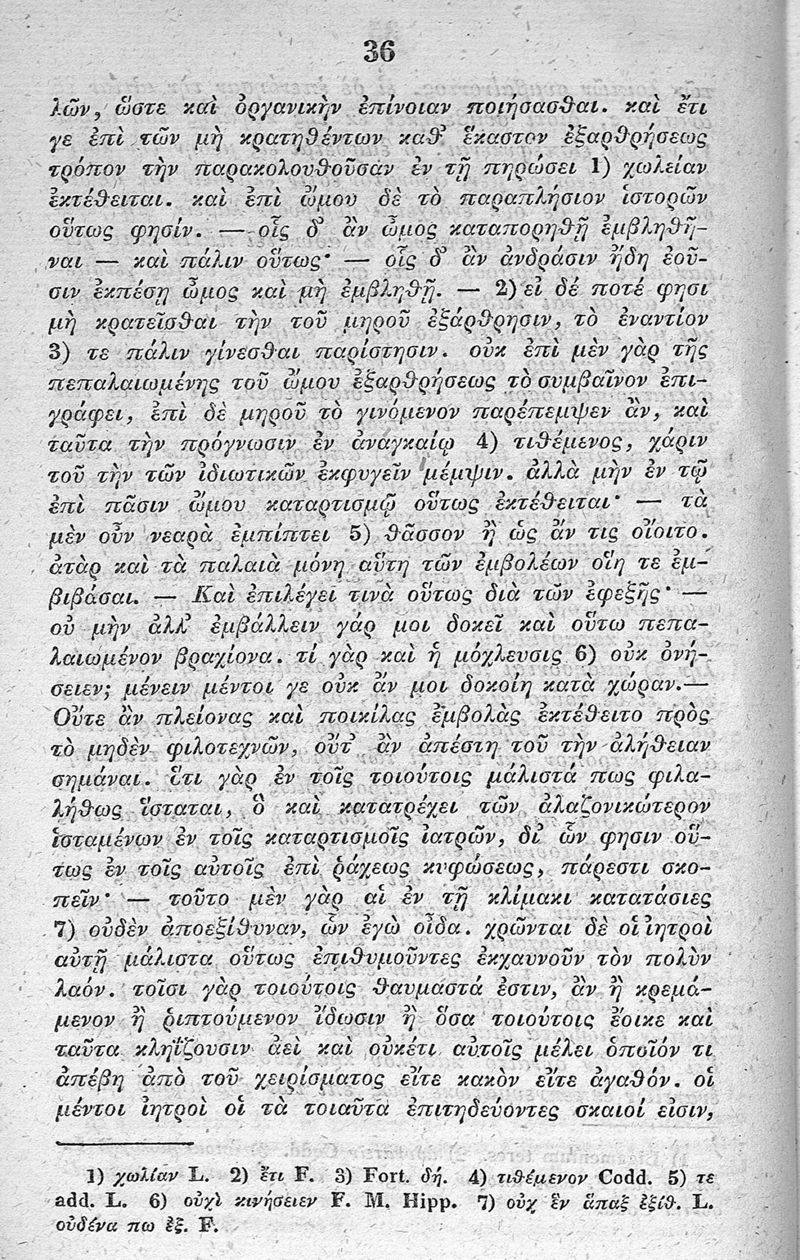 36
λῶν, ὥστε καὶ ὀργανικὴν ἐπίνοιαν ποιήσασθαι. καὶ ἔτι
γε ἐπὶ τῶν μὴ κρατηθέντων καθ' ἕκαστον ἐξαρθρήσεως
τρόπον τὴν παρακολουθοῦσαν ἐν τῇ πηρώσει 1) χωλείαν
ἐκτέθειται. καὶ ἐπὶ ὤμου δὲ τὸ παραπλήσιον ἱστορῶν
οὕτως φησίν. — οἷς δ' ἂν ὦμος καταπορηθῇ ἐμβληθῆ-
ναι — καὶ πάλιν οὕτως· — οἷς δ' ἂν ἀνδράσιν ἤδη ἐοῦ-
σιν ἐκπέσῃ ὦμος καὶ μὴ ἐμβληθῇ. — 2) εἰ δέ ποτέ φησι
μὴ κρατεῖσθαι τὴν τοῦ μηροῦ ἐξάρθρησιν, τὸ ἐναντίον
3) τε πάλιν γίνεσθαι παρίστησιν. οὐκ ἐπὶ μὲν γὰρ τῆς
πεπαλαιωμένης τοῦ ὤμου ἐξαρθρήσεως τὸ συμβαῖνον ἐπι-
γράφει, ἐπὶ δὲ μηροῦ τὸ γινόμενον παρέπεμψεν ἂν, καὶ
ταῦτα τὴν πρόγνωσιν ἐν ἀναγκαίῳ 4) τιθέμενος, χάριν
τοῦ τὴν τῶν ἰδιωτικῶν ἐκφυγεῖν μέμψιν. ἀλλὰ μὴν ἐν τῷ
ἐπὶ πᾶσιν ὤμου καταρτισμῷ οὕτως ἐκτέθειται· — τὰ
μὲν οὖν νεαρὰ ἐμπίπτει 5) θᾶσσον ἢ ὡς ἄν τις οἴοιτο.
ἀτὰρ καὶ τὰ παλαιὰ μόνη αὕτη τῶν ἐμβολέων οἵη τε ἐμ-
βιβάσαι. — Καὶ ἐπιλέγει τινὰ οὕτως διὰ τῶν ἐφεξῆς· —
οὐ μὴν ἀλλ' ἐμβάλλειν γάρ μοι δοκεῖ καὶ οὕτω πεπα-
λαιωμένον βραχίονα. τί γὰρ καὶ ἡ μόχλευσις 6) οὐκ ὀνή-
σειεν; μένειν μέντοι γε οὐκ ἄν μοι δοκοίη κατὰ χώραν.—
Οὔτε ἂν πλείονας καὶ ποικίλας ἐμβολὰς ἐκτέθειτο πρὸς
τὸ μηδὲν φιλοτεχνῶν, οὔτ' ἂν ἀπέστη τοῦ τὴν ἀλήθειαν
σημάναι. ὅτι γὰρ ἐν τοῖς τοιούτοις μάλιστά πως φιλα-
λήθως ἵσταται, ὃ καὶ κατατρέχει τῶν ἀλαζονικώτερον
ἱσταμένων ἐν τοῖς καταρτισμοῖς ἰατρῶν, δι' ὧν φησιν οὕ-
τως ἐν τοῖς αὐτοῖς ἐπὶ ῥάχεως κυφώσεως, πάρεστι σκο-
πεῖν· — τοῦτο μὲν γὰρ αἱ ἐν τῇ κλίμακι κατατάσιες
7) οὐδὲν ἀποεξίθυναν, ὧν ἐγὼ οἶδα. χρῶνται δὲ οἱ ἰητροὶ
αὐτῇ μάλιστα οὕτως ἐπιθυμοῦντες ἐκχαυνοῦν τὸν πολὺν
λαόν. τοῖσι γὰρ τοιούτοις θαυμαστά ἐστιν, ἂν ἢ κρεμά-
μενον ἢ ῥιπτούμενον ἴδωσιν ἢ ὅσα τοιούτοις ἔοικε καὶ
ταῦτα κληΐζουσιν ἀεὶ καὶ οὐκέτι αὐτοῖς μέλει ὁποῖόν τι
ἀπέβη ἀπὸ τοῦ χειρίσματος εἴτε κακὸν εἴτε ἀγαθόν. οἱ
μέντοι ἰητροὶ οἱ τὰ τοιαῦτα ἐπιτηδεύοντες σκαιοί εἰσιν,
1) χωλίαν L. 2) ἔτι F. 3) Fort. δή. 4) τιθέμενον Codd. 5) τε
add. L. 6) οὐχὶ κινήσειεν F. M. Hipp. 7) οὐχ ἓν ἅπαξ ἐξίθ. L.
οὐδένα πω ἐξ. F.